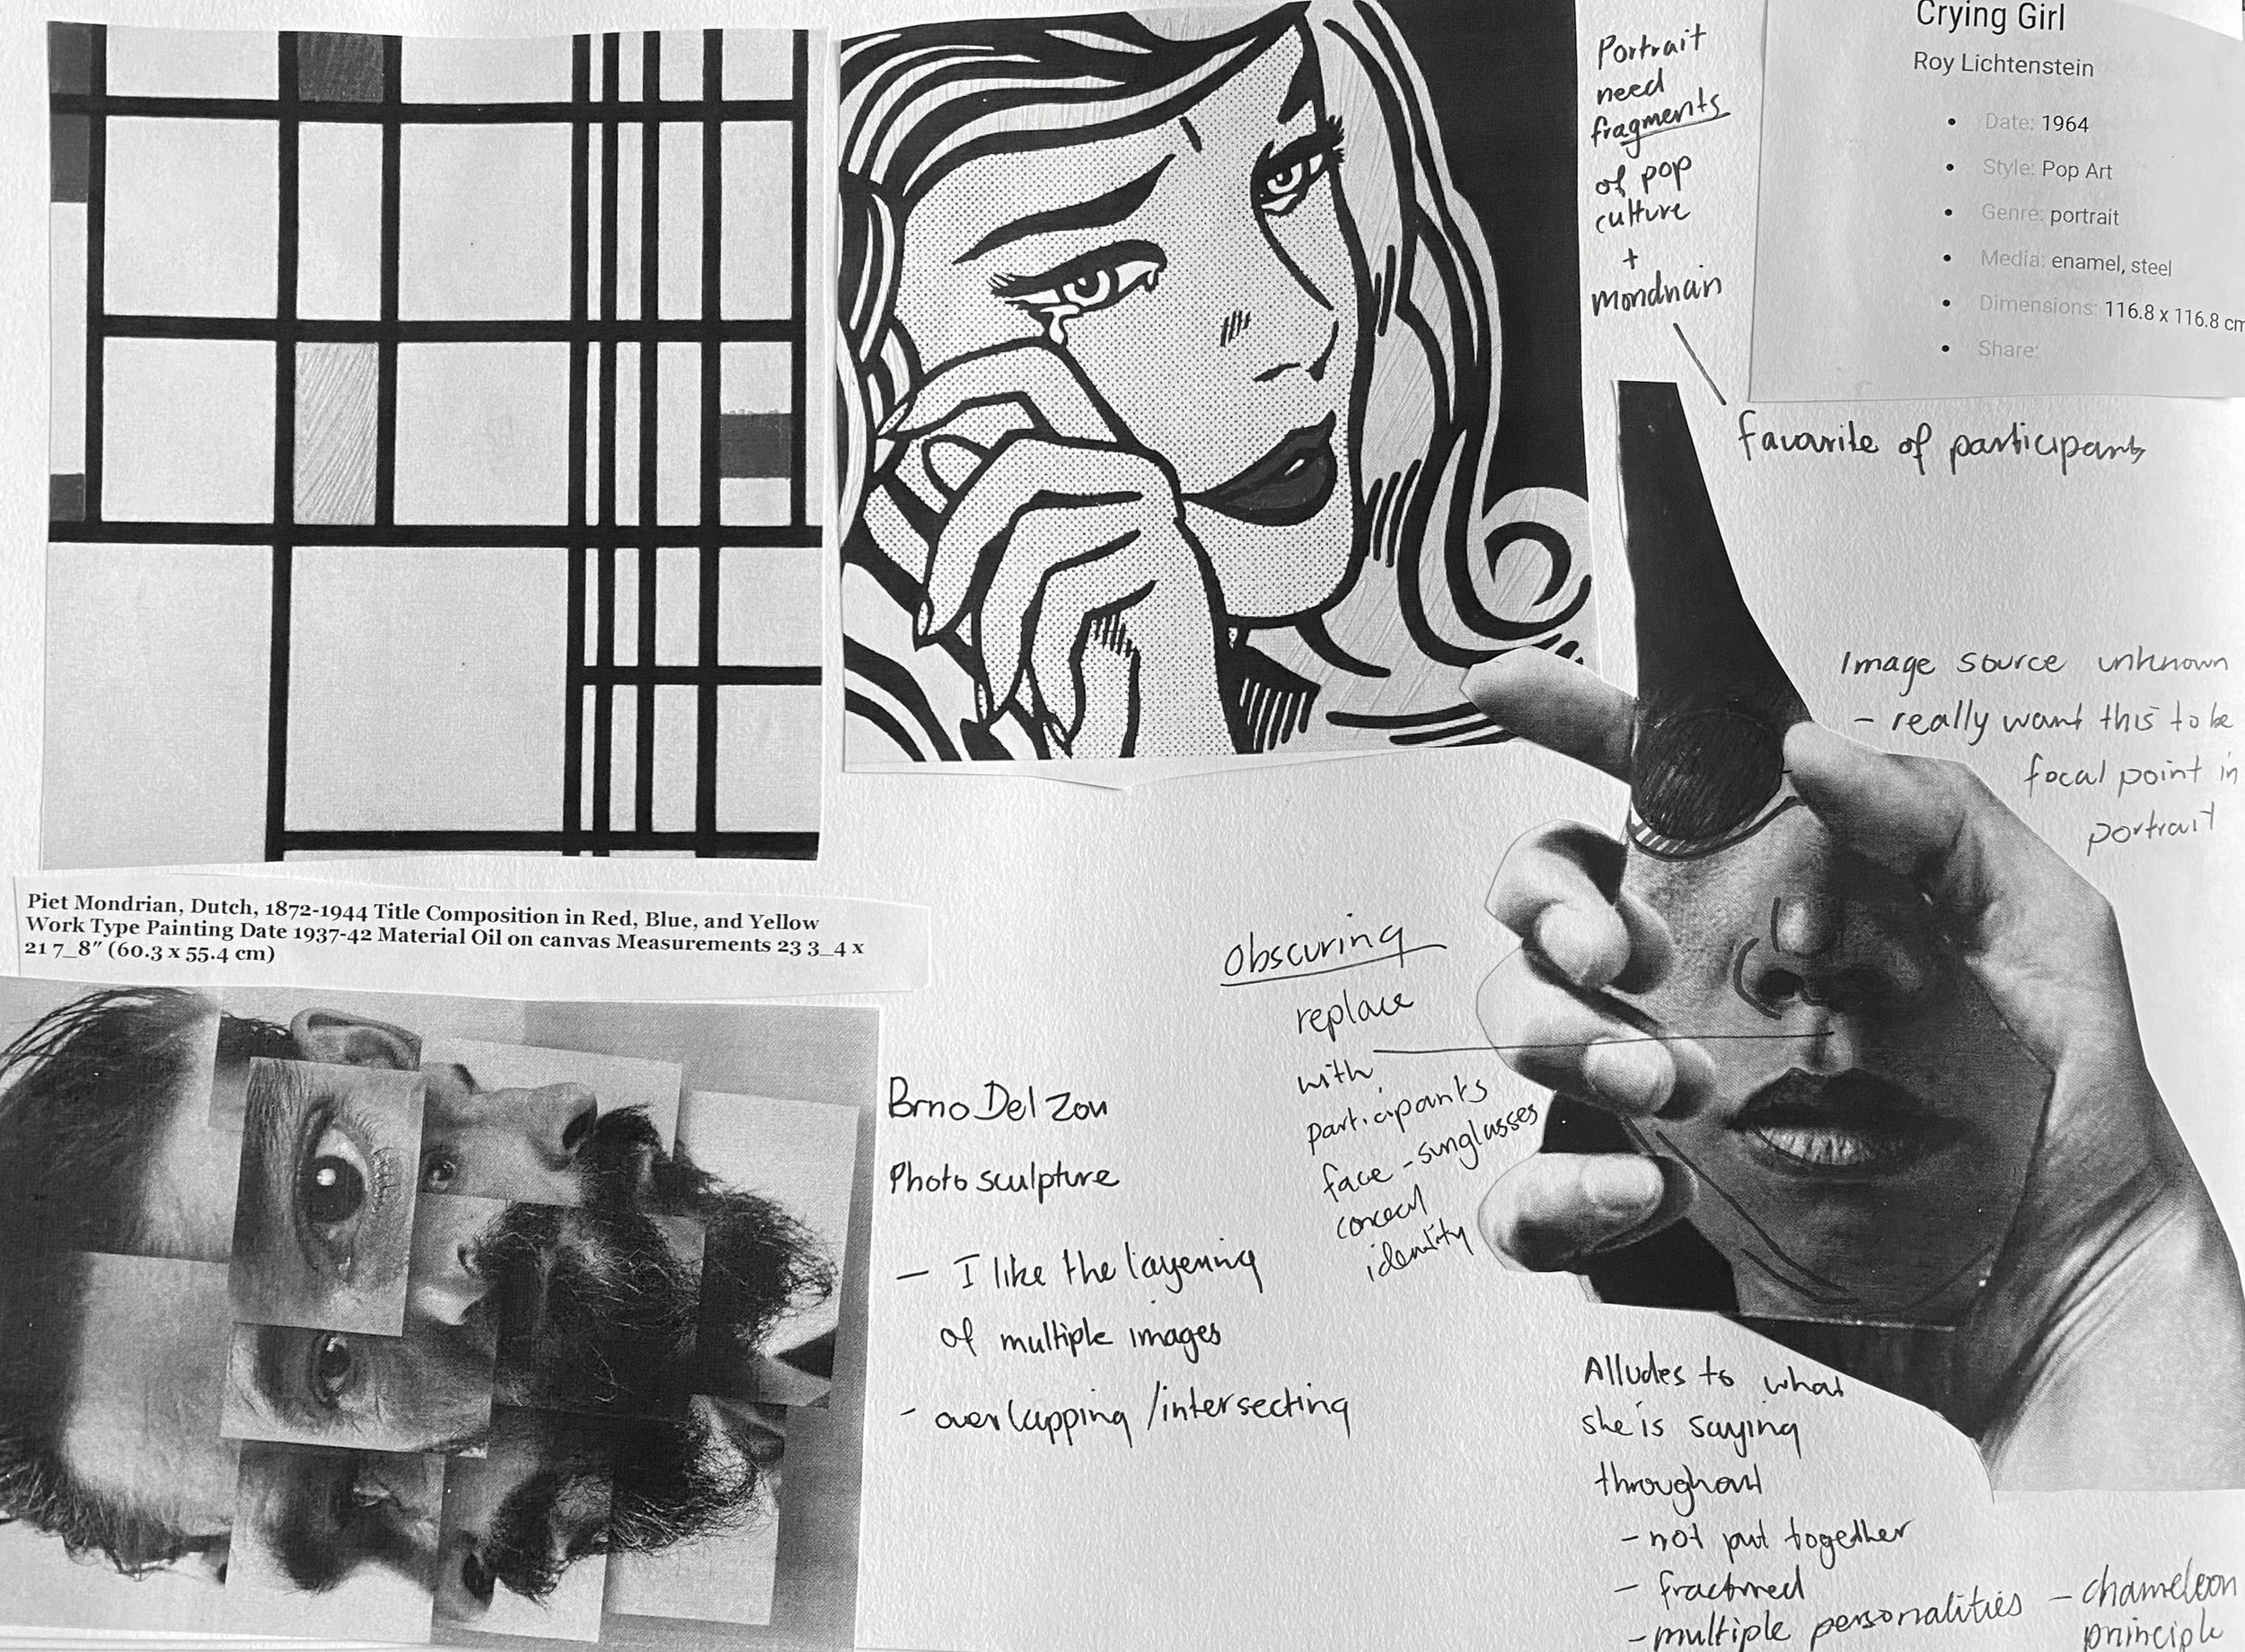 Portrait
need
fragments
of pop
culture
+
mondrian
favourite of participants
Crying Girl
Roy Lichtenstein
• Date: 1964
• Style: Pop Art
• Genre: portrait
• Media: enamel, steel
• Dimensions: 116.8 x 116.8 cm
• Share:
Image source unknown
– really want this to be
focal point in
portrait
Piet Mondrian, Dutch, 1872-1944 Title Composition in Red, Blue, and Yellow
Work Type Painting Date 1937-42 Material Oil on canvas Measurements 23 3_4 x
21 7_8″ (60.3 x 55.4 cm)
obscuring
replace
with
participants
face - sunglasses
conceal
identity
Brno Del Zou
Photo sculpture
– I like the layering
of multiple images
- overlapping /intersecting
Alludes to what
she is saying
throughout
- not put together
- fractured
- multiple personalities – chameleon
principle